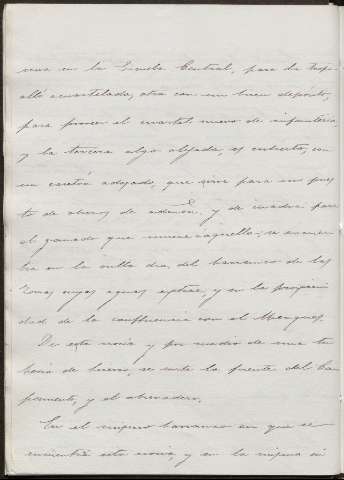 una en la Escuela Central, para la tropa
allí acuartelada, otra con un buen depósito,
para proveer el cuartel nuevo de infantería
y la tercera algo alejada, es cubierta, con
un cajetón adosado, que sirve para un pues
to de de y de cuadra para
el ganado que mueve aquella; se encuen
tra en la orilla dra. del barranco de las
Zonas cuyas aguas extrae, y en la proximi
dad de la confluencia con el
De esta noria y por medio de una tu
bería de hierro, se surte la fuente del Cam
pamento, y el abrevadero.
En el mismo barranco en que se
encuentra esta noria, y en la misma